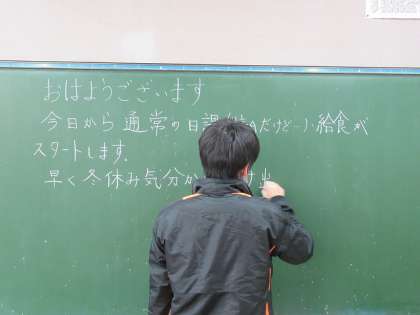 おはようございます
今日から通常の日課 だけど 給食が
スタートします.
早く冬休み気分か け出